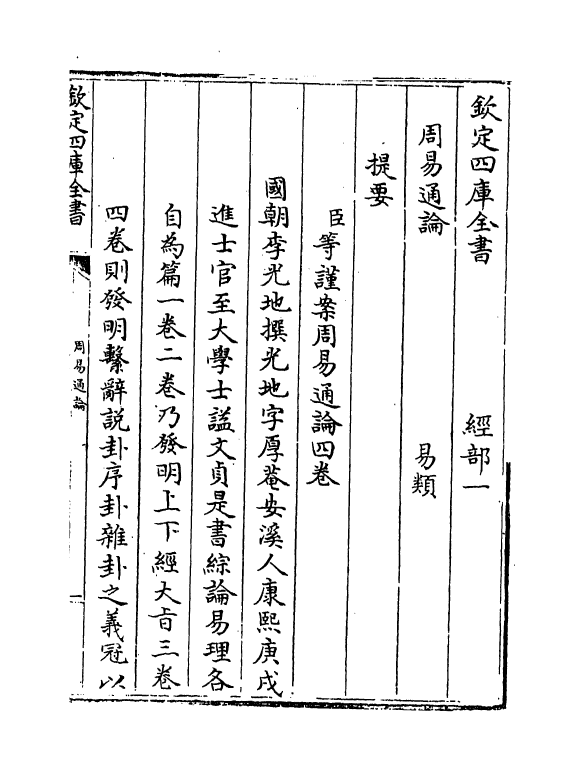 欽定四庫全書　經部一
周易通論　易類
提要
臣等謹案周易通論四卷
國朝李光地撰光地字厚菴安溪人康熙庚戌
進士官至大學士諡文貞是書綜論易理各
自為篇一卷二卷乃發明上下經大㫖三卷
四卷則發明繫辭說卦序卦雜卦之義冠以
欽定四庫全書
周易通論
一